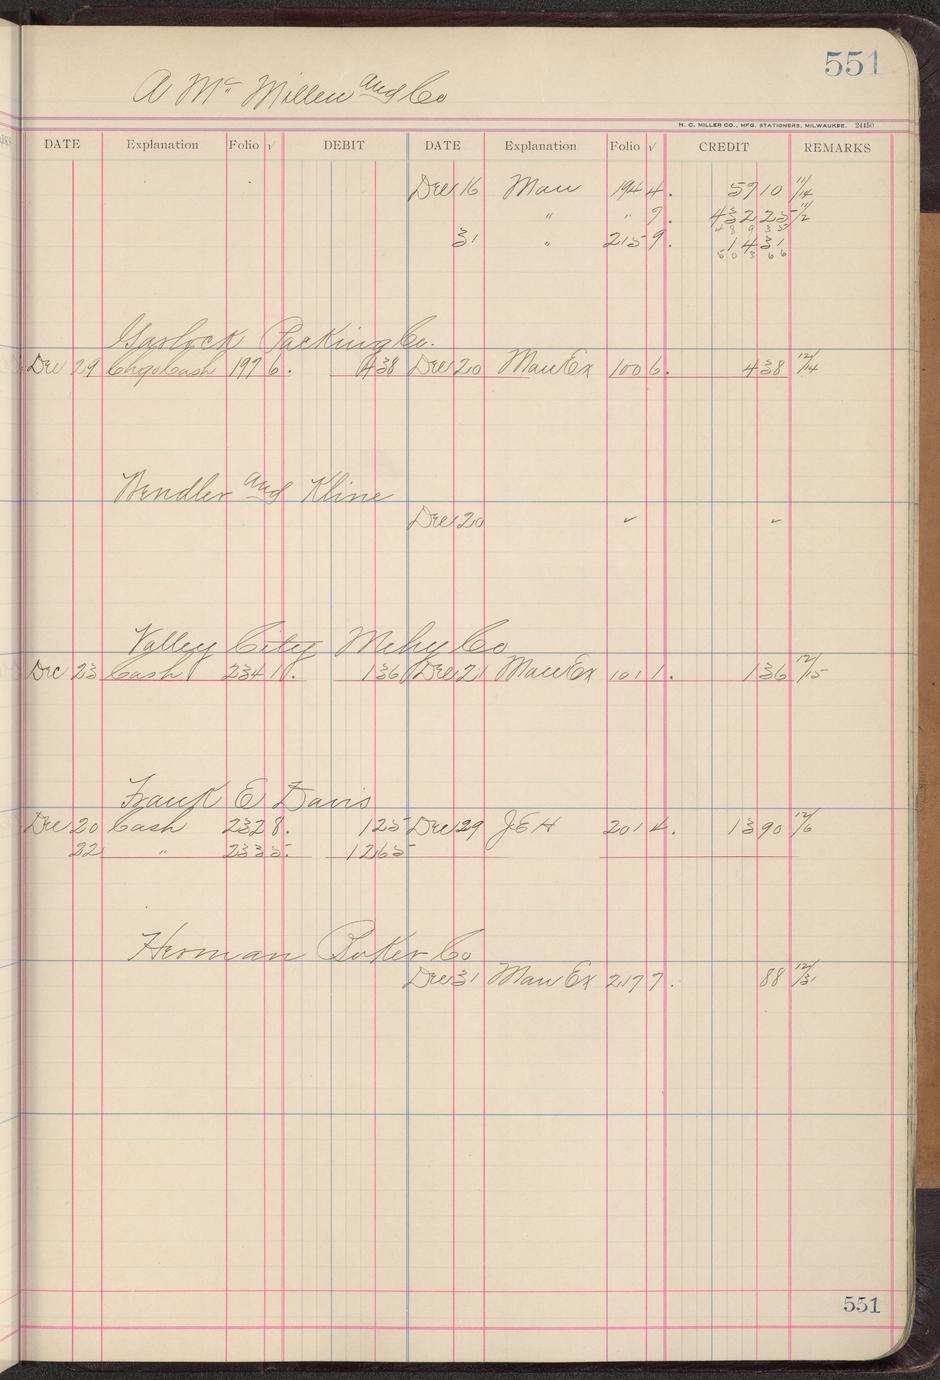 551
A Mc Millen and Co
H. C. MILLER CO., MFG. STATIONERS, MILWAUKEE. 24450
DATE Explanation Folio √ DEBIT DATE Explanation Folio √ CREDIT REMARKS
Dec 16 Man 1944. 5710 11/14
" " 7. 43225 11/2
48935
31 " 2159. 1431
50366
Garlock Packing Co.
Dec 29 ChgoCash 1976. 438 Dec 20 Man Ex 1006. 438 12/14
and Kline
Dec 20 ✓ ✓
Valley City Mchy Co
Dec 23 Cash 2341. 136 Dec 21 Man Ex 1011. 136 12/15
Frank E Davis
Dec 20 Cash 2328. 125 Dec 29 J E H 2014. 1390 12/6
22 " 2335. 1265
Herman Boker Co
Dec 31 Man Ex 2177. 88 12/31
551